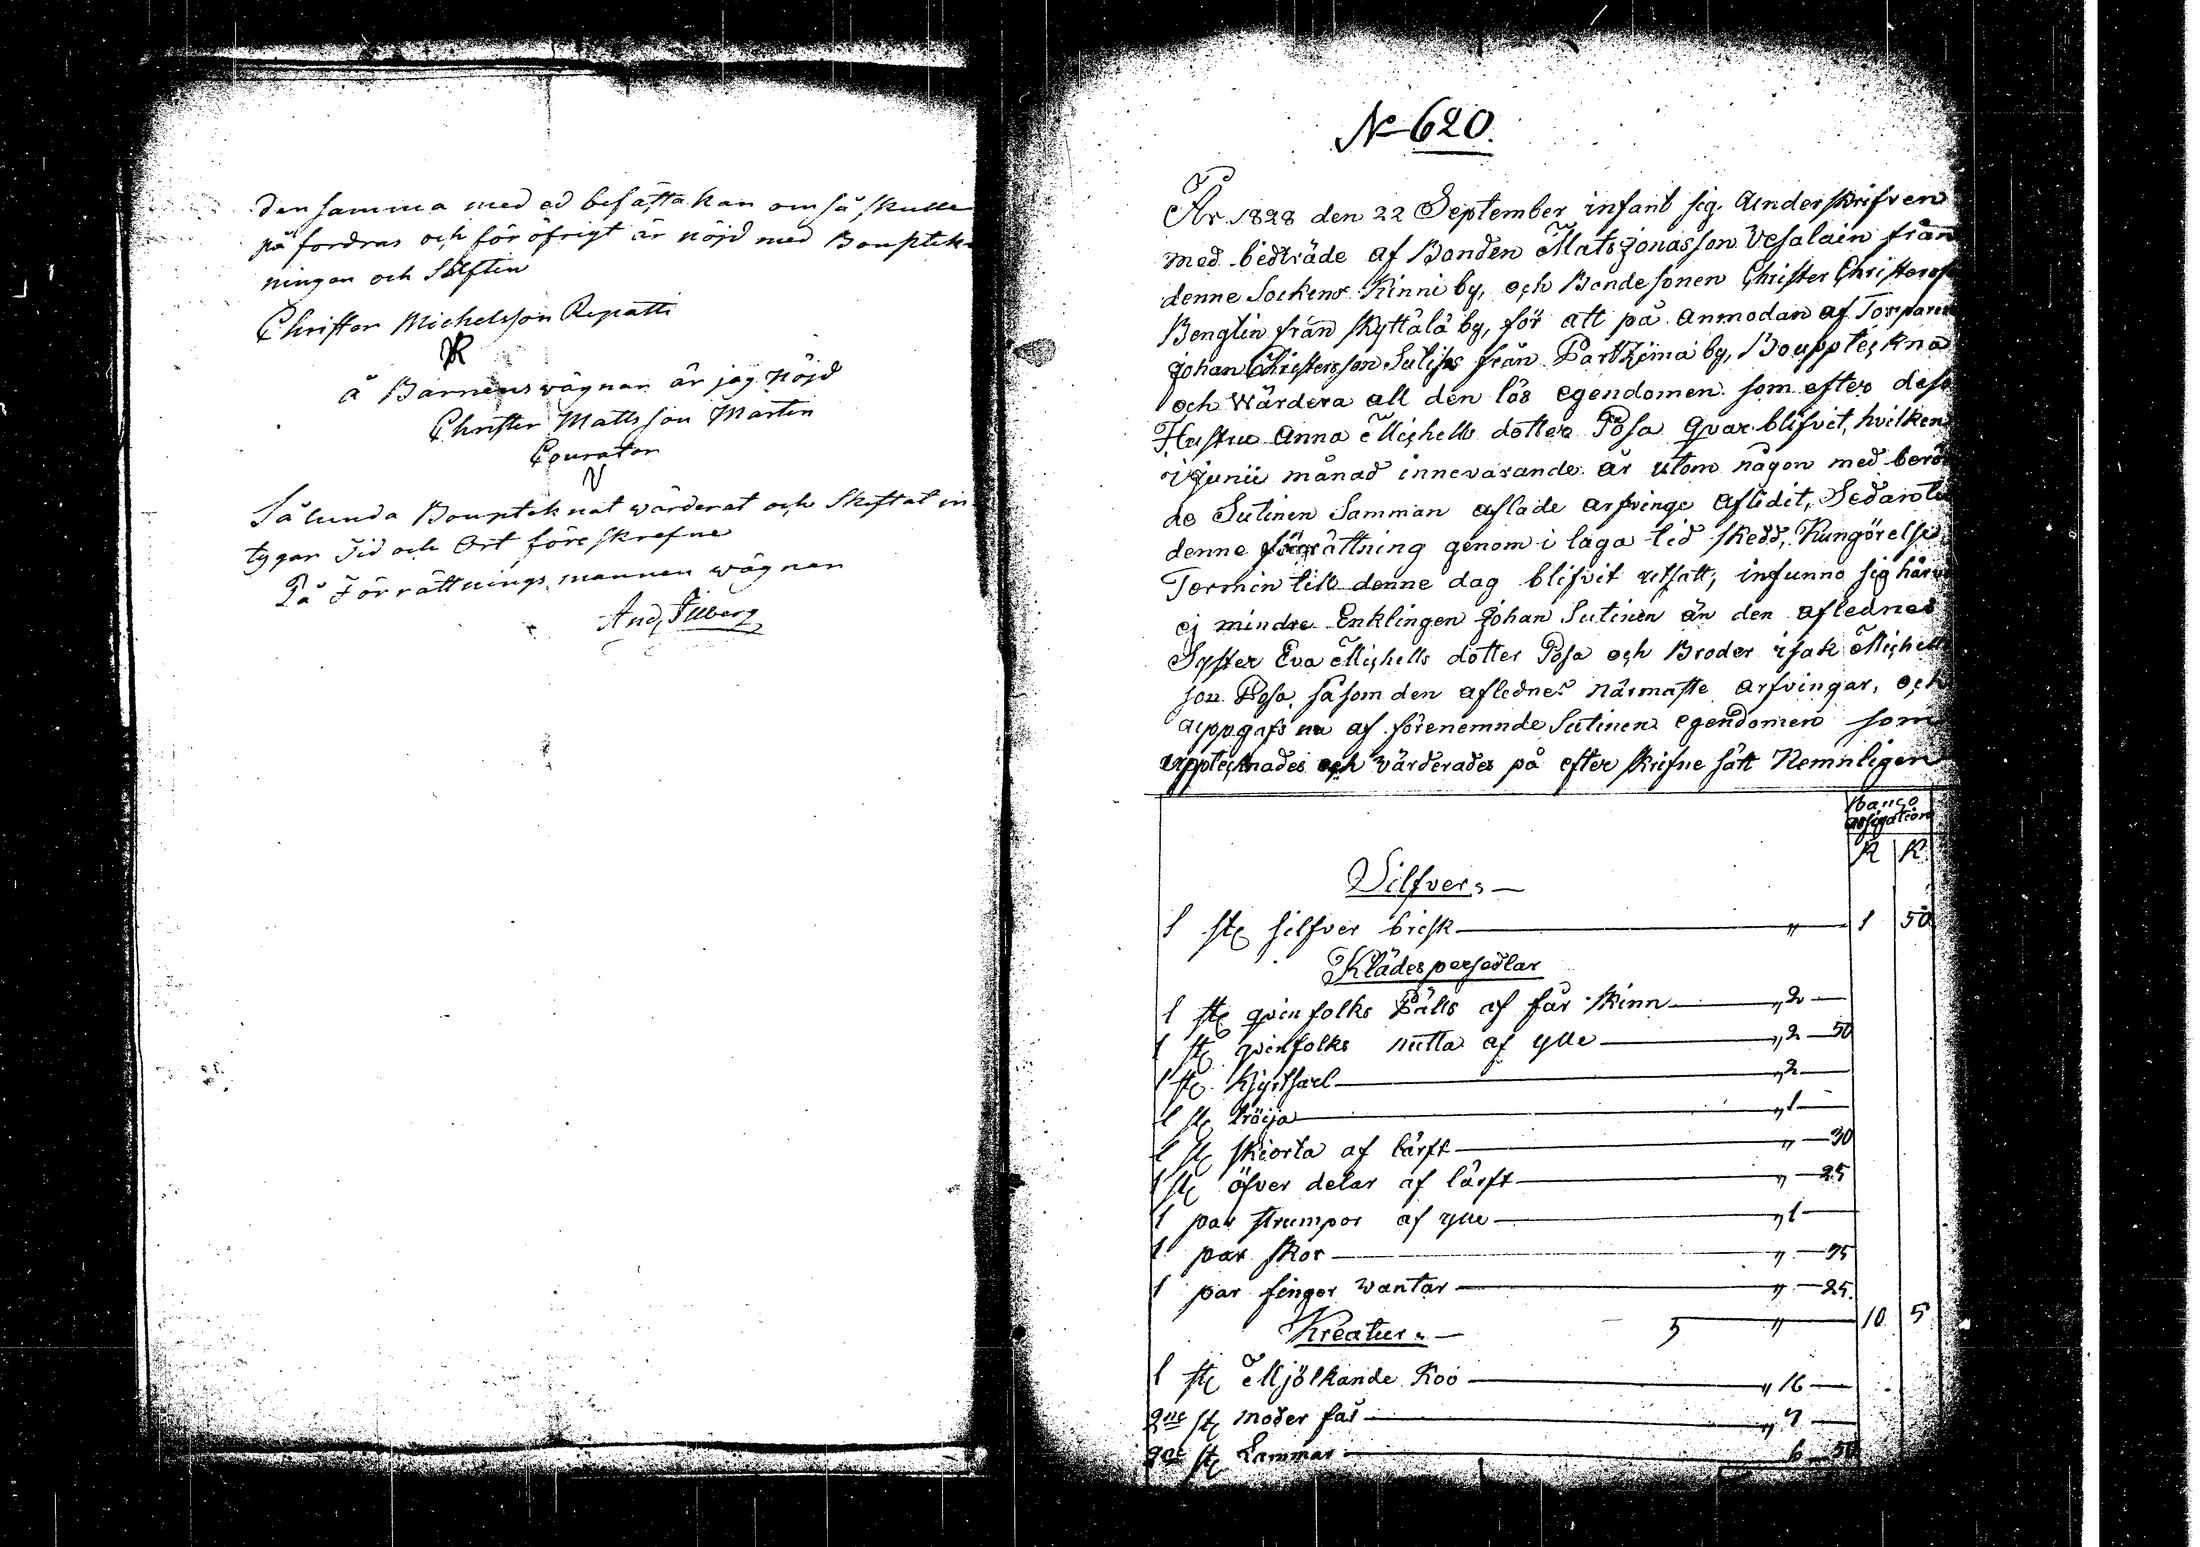 densamma med ed besätta kan om så skulle
på fordras och för öfrigt är nöjd med Bouptek-
ningen och Skiften
Christer Michelsson Repatti
å Barnens wägnar är jag nöjd
Christer Mattsson Martin
Courator
Sålunda Boupteknat wärderat och Skiftat in
tygar Tid och Ort föreskrefne
På Förrättnings mannen wägnar
And, Illberg
No 620.
År 1828 den 22 September infant sig underskrifven
med biträde af Bonden Mats Jonasson Vesalain från
denne Sockens Kinni by, och Bondesonen Christer Christerss
Benglin från Skyttälä by, för att på anmodan af Torparen
Johan Christersson Sutinen från Partzima by, Bouppteckna
och Wärdera all den lös egendomen som efter dess
Hustru Anna Michells dotter Posa qvar blifvit, hvilken
i Junii månad innevarande år utom någon med berör
de Sutinen Samman aflade arfvinge aflidit, Sedan til
denne förrättning genom i laga tid skedd, Kungörelse
Termin till denne dag blifvit utsatt, infunno sig härv
ej mindre Enklingen Johan Sutinen än den aflednes
Syster Eva Michells dotter Posa och Broder isak Michells
son Posa, såsom den aflednes närmaste arfvingar, och
uppgafs nu af förenemnde Sutinen egendomen som
upptecknades och värderades på efter skrifne sätt Nemnligen
Banco
assignation
R K
Silfver
1 st silfver brisk " 1 50
Klädespersedlar
1 st qvinfolks Pälls af får skinn " 2 —
1 st qvinfolks mutta af ylle " 2 — 50
1 st Kjortsarl " 2 —
1 st tröija " 1 —
1 st skiorta af lärft " — 30
1 st öfver delar af lärft " — 25
1 par strumpor af ylle " 1 —
1 par skor " — 75
1 par finger wantar " — 25.
" 10 5
Kreatur
1 st Mjölkande Koo " 16 —
2ne st moder får " 7 —
2ne st Lammar 6 — 50